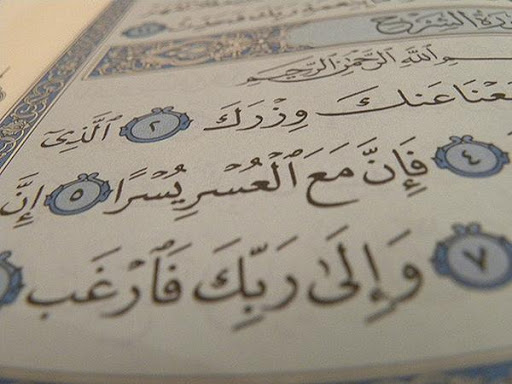 سُورَةُ الشَّرْحِ
بِسْمِ ٱللَّهِ ٱلرَّحْمَٰنِ ٱلرَّحِيمِ
عْنَا عَنكَ وِزْرَكَ ٢ ٱلَّذِىٓ
٤ فَإِنَّ مَعَ ٱلْعُسْرِ يُسْرًا ٥ إِنَّ
٧ وَإِلَىٰ رَبِّكَ فَٱرْغَب